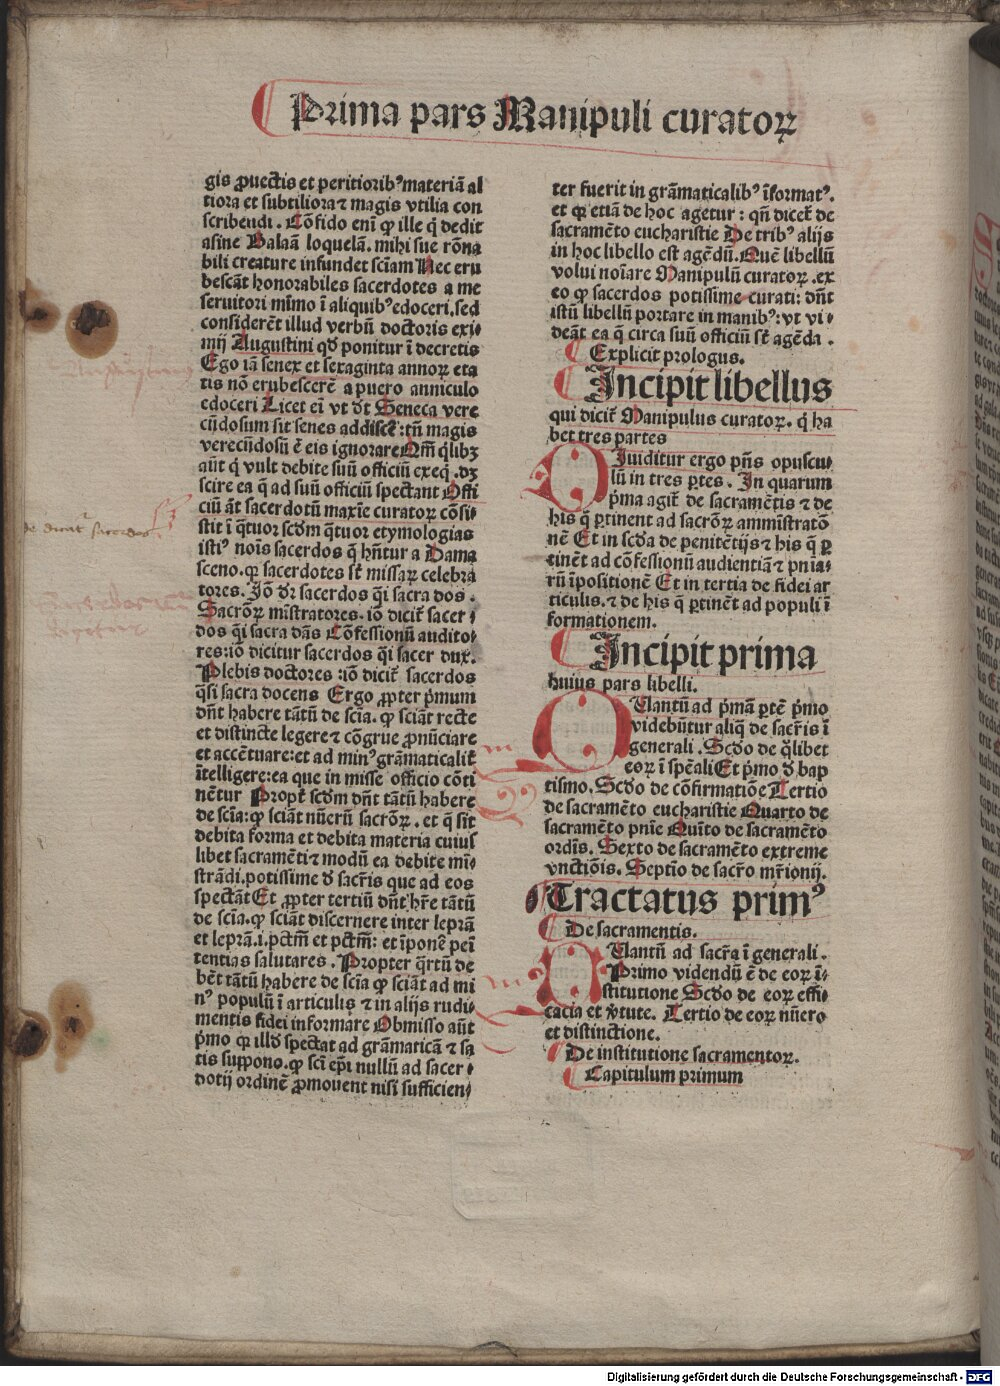 Prima pars Manipuli curatoꝝ
gis ꝓuectis et peritiorib⁹ materiā al
tiora et subtiliora ⁊ magis vtilia con
scribendi. Cōfido enī ꝙ ille q̇ dedit
asine Balaā loquelā. mihi sue rōna
bili creature infundet sciam Nec eru
bescāt honorabiles sacerdotes a me
seruitori mimo ī aliquib⁹ edoceri. sed
considerēt illud verbū doctoris exi⸗
mij Augustini qd̄ ponitur ī decretis
Ego iā senex et sexaginta annoꝝ eta
tis nō erubescerē a puero anniculo
edoceri Licet eī vt dt̄ Seneca vere
cūdosum sit senes addiscē: tn̄ magis
verecūdosū ē eis ignorare Qm̄ qͥlibꝫ
aūt q̇ vult debite suū officiū exeq̇. dꝫ
scire ea q̄ ad suū officiū spectant Offi
ciū āt sacerdotū maxīe curatoꝝ cōsi⸗
stit ī qͣtuor scd̄m qͣtuor etymologias
isti⁹ noīs sacerdos q̄ hn̄tur a Dama
sceno. ꝙ sacerdotes st̄ missaꝝ celebra
tores. Jō dr̄ sacerdos qͣi sacra dos.
Sacroꝝ mīstratores. iō dicit̄ sacer⸗
dos qͣi sacra dās Cōfessionū audito⸗
res: iō dicitur sacerdos qͣi sacer dux.
Plebis doctores: iō dicit̄ sacerdos
qͣsi sacra docens Ergo ꝓpter p̄mum
dn̄t habere tātū de scīa. ꝙ sciāt recte
et distincte legere ⁊ cōgrue ꝓnūciare
et accētuare: et ad min⁹ grāmaticalit̄
ītelligere: ea que in misse officio cōti
nētur Propt̄ scd̄m dn̄t tātū habere
de scīa: ꝙ sciāt nūerū sacroꝝ. et q̄ sit
debita forma et debita materia cuius
libet sacramēti ⁊ modū ea debite mī⸗
strādi. potissime d̄ sacr̄is que ad eos
spectāt Et ꝓpter tertiū dn̄t hr̄e tātū
de scīa. ꝙ sciāt discernere inter leprā
et leprā. i. pctm̄ et pctm̄: et īponē peī
tentias salutares. Propter qͣrtū de
bēt tātū habere de scīa ꝙ sciāt ad mi
n⁹ populū ī articulis ⁊ in alijs rudi⸗
mentis fidei informare Obmisso aūt
p̄mo ꝙ illd̄ spectat ad grāmaticā ⁊ sa
tis suppono. ꝙ sci ep̄i nullū ad sacer⸗
dotij ordinē ꝓmouent nisi sufficien⸗
ter fuerit in grāmaticalib⁹ īformat⁹.
et ꝙ etiā de hoc agetur: qn̄ dicet̄ de
sacramēto eucharistie De trib⁹ alijs
in hoc libello est agēdū. Quē libellū
volui noīare Manipulū curatoꝝ. ex
eo ꝙ sacerdos potissime curati: dn̄t
istū libellū portare in manib⁹: vt vi⸗
deāt ea q̄ circa suū officiū st̄ agēda.
Explicit prologus.
Incipit libellus
qui dicit̄ Manipulus curatoꝝ. q̇ ha
bet tres partes
DJuiditur ergo pn̄s opuscu⸗
lū in tres ꝑtes. In quarum
p̄ma agit̄ de sacramētis ⁊ de
his q̄ ꝑtinent ad sacroꝝ amministratō
nē Et in scd̄a de penitētijs ⁊ his q̄ ꝑ
tinēt ad cōfessionū audientiā ⁊ pnīa⸗
rū īpositionē Et in tertia de fidei ar
ticulis. ⁊ de his q̄ ꝑtinēt ad populi ī
formationem.
Incipit prima
huius pars libelli.
QUantū ad p̄mā ꝑtē p̄mo
videbūtur aliq̄ de sacr̄is ī
generali. Scd̄o de qͦlibet
eoꝝ ī spēali Et p̄mo d̄ bap
tismo. Scd̄o de cōfirmatiōe Tertio
de sacramēto eucharistie Quarto de
sacramēto pnīe Quīto de sacramēto
ordīs. Sexto de sacramēto extreme
vnctiōis. Septīo de sacr̄o mr̄ionij.
Tractatus prim⁹
De sacramentis.
QUantū ad sacr̄a ī generali.
Primo videndū ē de eoꝝ ī⸗
stitutione Scd̄o de eoꝝ effi⸗
cacia et v̄tute. Tertio de eoꝝ nūero
et distinctione.
De institutione sacramentoꝝ.
Capitulum primum
Digitalisierung gefördert durch die Deutsche Forschungsgemeinschaft - DFG